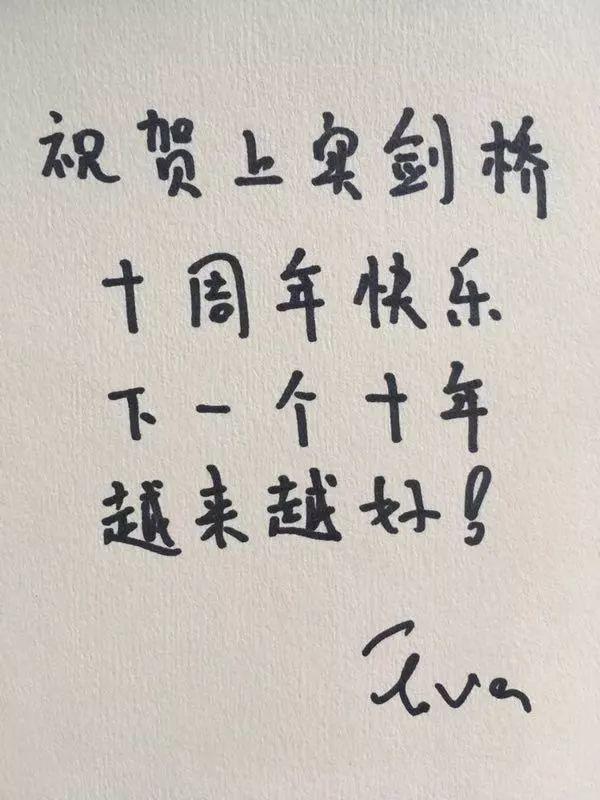 祝贺上实剑桥
十周年快乐
下一个十年
越来越好!
Eva